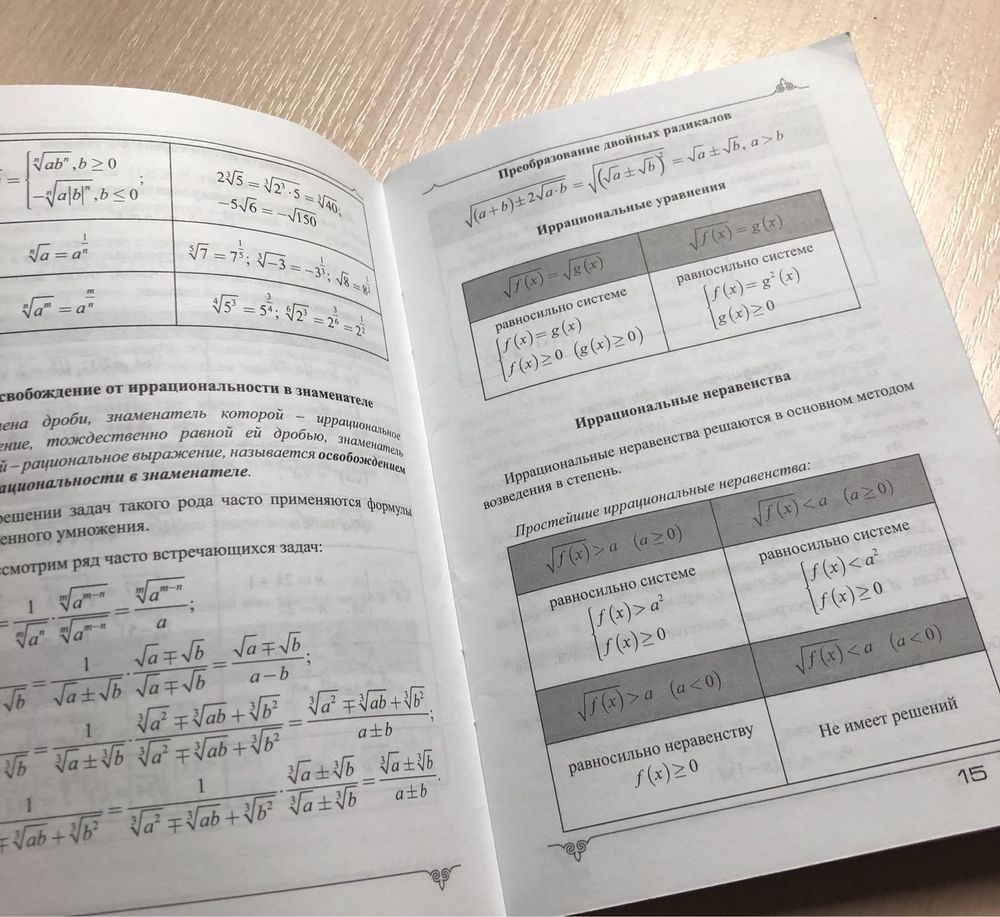 = { ⁿ√(abⁿ), b ≥ 0
−ⁿ√(a|b|ⁿ), b ≤ 0 ;
2∛5 = ∛(2³·5) = ∛40;
−5√6 = −√150
ⁿ√a = a^(1/n)
⁵√7 = 7^(1/5); ∛−3 = −3^(1/3); √8 = 8^(1/2)
ⁿ√(aᵐ) = a^(m/n)
⁴√(5³) = 5^(3/4); ⁶√(2³) = 2^(3/6) = 2^(1/2)
свобождение от иррациональности в знаменателе
ена дроби, знаменатель которой – иррациональное
ение, тождественно равной ей дробью, знаменатель
й – рациональное выражение, называется освобождением
ациональности в знаменателе.
решении задач такого рода часто применяются формулы
енного умножения.
ссмотрим ряд часто встречающихся задач:
= 1/ᵐ√(aⁿ) · ᵐ√(aᵐ⁻ⁿ)/ᵐ√(aᵐ⁻ⁿ) = ᵐ√(aᵐ⁻ⁿ)/a;
√b = 1/(√a ± √b) · (√a ∓ √b)/(√a ∓ √b) = (√a ∓ √b)/(a − b);
∛b = 1/(∛a ± ∛b) · (∛a² ∓ ∛ab + ∛b²)/(∛a² ∓ ∛ab + ∛b²) = (∛a² ∓ ∛ab + ∛b²)/(a ± b);
1/(∓ ∛ab + ∛b²) = 1/(∛a² ∓ ∛ab + ∛b²) · (∛a ± ∛b)/(∛a ± ∛b) = (∛a ± ∛b)/(a ± b).
Преобразование двойных радикалов
√((a + b) ± 2√(a·b)) = √((√a ± √b)²) = √a ± √b, a > b
Иррациональные уравнения
√f(x) = √g(x)
√f(x) = g(x)
равносильно системе
{ f(x) = g(x)
f(x) ≥ 0 (g(x) ≥ 0)
равносильно системе
{ f(x) = g²(x)
g(x) ≥ 0
Иррациональные неравенства
Иррациональные неравенства решаются в основном методом
возведения в степень.
Простейшие иррациональные неравенства:
√f(x) > a (a ≥ 0)
√f(x) < a (a ≥ 0)
равносильно системе
{ f(x) > a²
f(x) ≥ 0
равносильно системе
{ f(x) < a²
f(x) ≥ 0
√f(x) > a (a < 0)
√f(x) < a (a < 0)
равносильно неравенству
f(x) ≥ 0
Не имеет решений
15